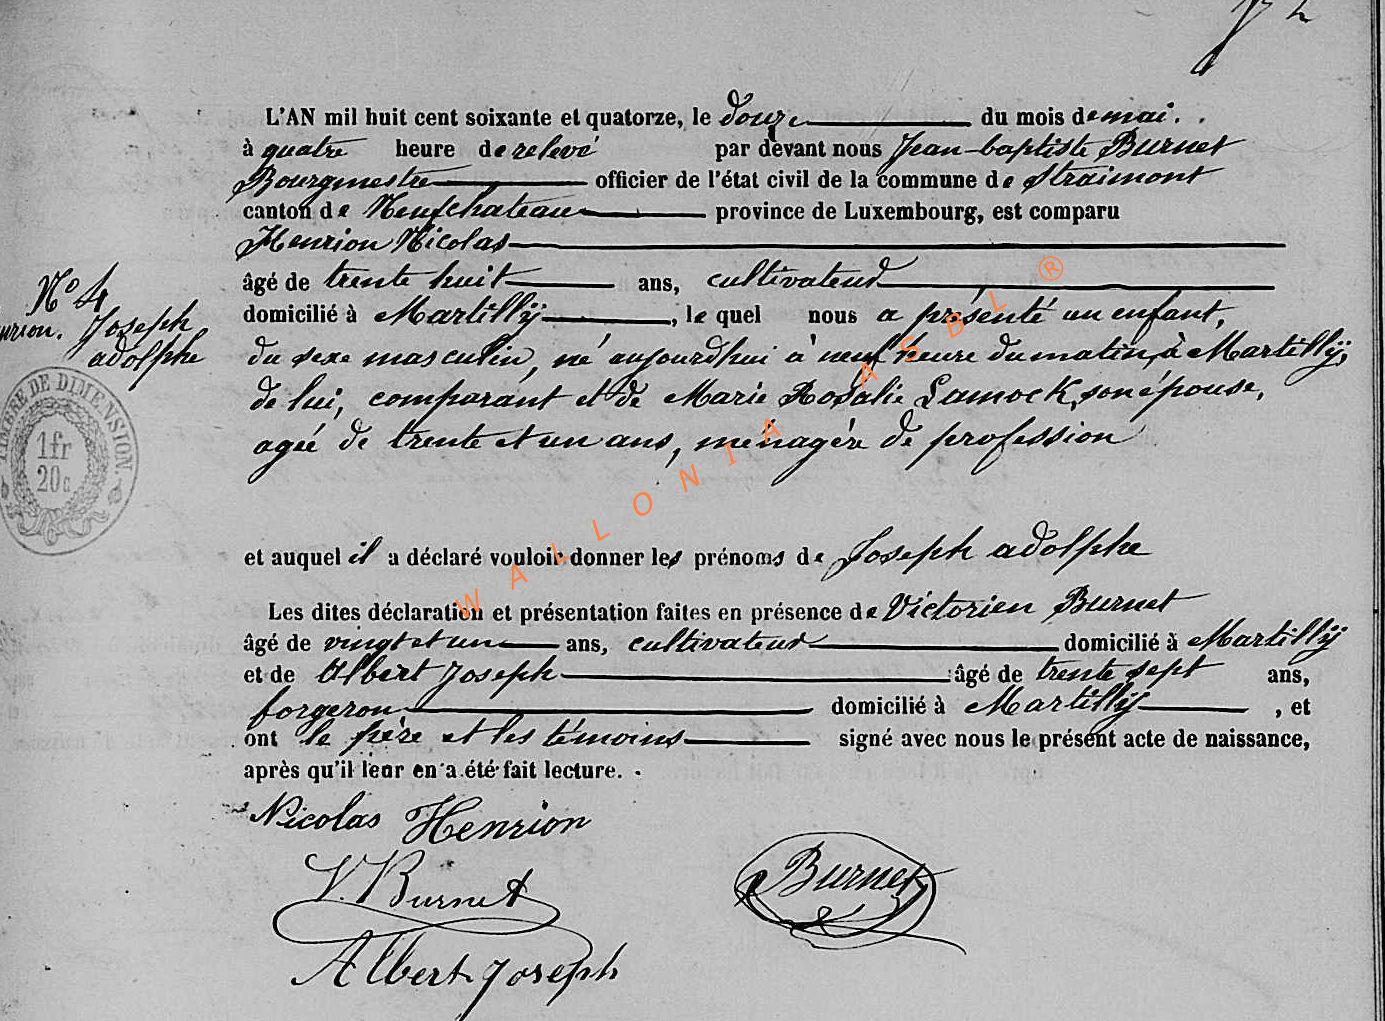 L'AN mil huit cent soixante et quatorze, le douze du mois de mai.
à quatre heure de relevé par devant nous Jean-baptiste Burnet
Bourgmestre officier de l'état civil de la commune de Straimont
canton de Neufchateau province de Luxembourg, est comparu
Henrion Nicolas
âgé de trente huit ans, cultivateur
N° 4
domicilié à Martilly, le quel nous a présenté un enfant,
Joseph
adolphe
du sexe masculin, né aujourdhui à neuf heure du matin, à Martilly,
de lui, comparant et de Marie Rosalie Lamock, son épouse,
agée de trente et un ans, ménagère de profession
TIMBRE DE DIMENSION
1 fr
20 c
et auquel il a déclaré vouloir donner les prénoms de Joseph adolphe
Les dites déclaration et présentation faites en présence de Victorien Burnet
âgé de vingt et un ans, cultivateur domicilié à Martilly
et de Albert Joseph âgé de trente sept ans,
forgeron domicilié à Martilly, et
ont le père et les témoins signé avec nous le présent acte de naissance,
après qu'il leur en a été fait lecture.
Nicolas Henrion
V. Burnet
Burnet
Albert Joseph
WALLONIA ASBL ®